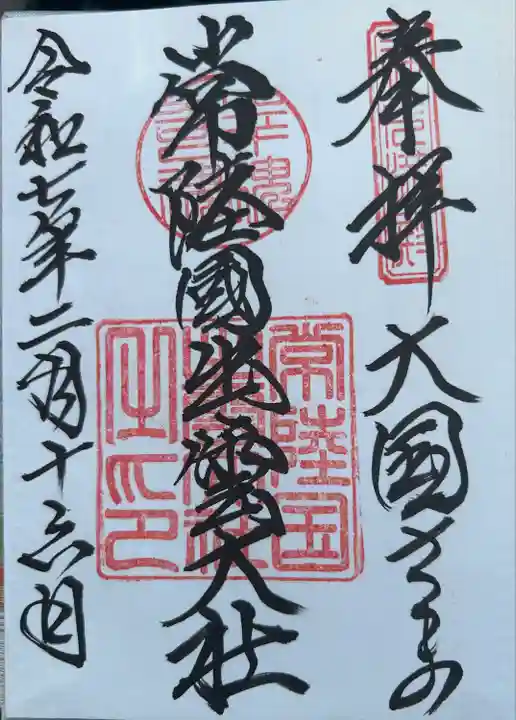 奉拝 大國さまの
常陸國出雲大社
令和七年二月十六日
常陸国
之印